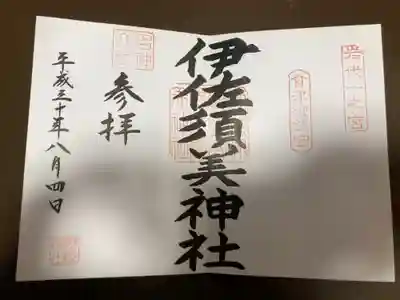 岩代一之宮
伊佐須美神社
参拝
平成三十年八月四日